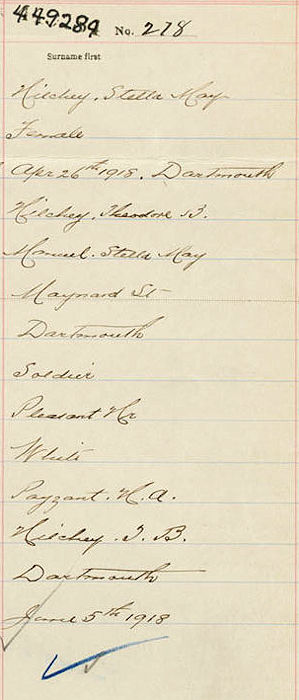 449284 No. 278
Surname first
Hilchey, Stella May
Female
Apr 26th 1918, Dartmouth
Hilchey, Theodore B.
Manuel. Stella May
Maynard St
Dartmouth
Soldier
Pleasant Hr
White
Payzant. H. A.
Hilchey. T. B.
Dartmouth
June 5th 1918